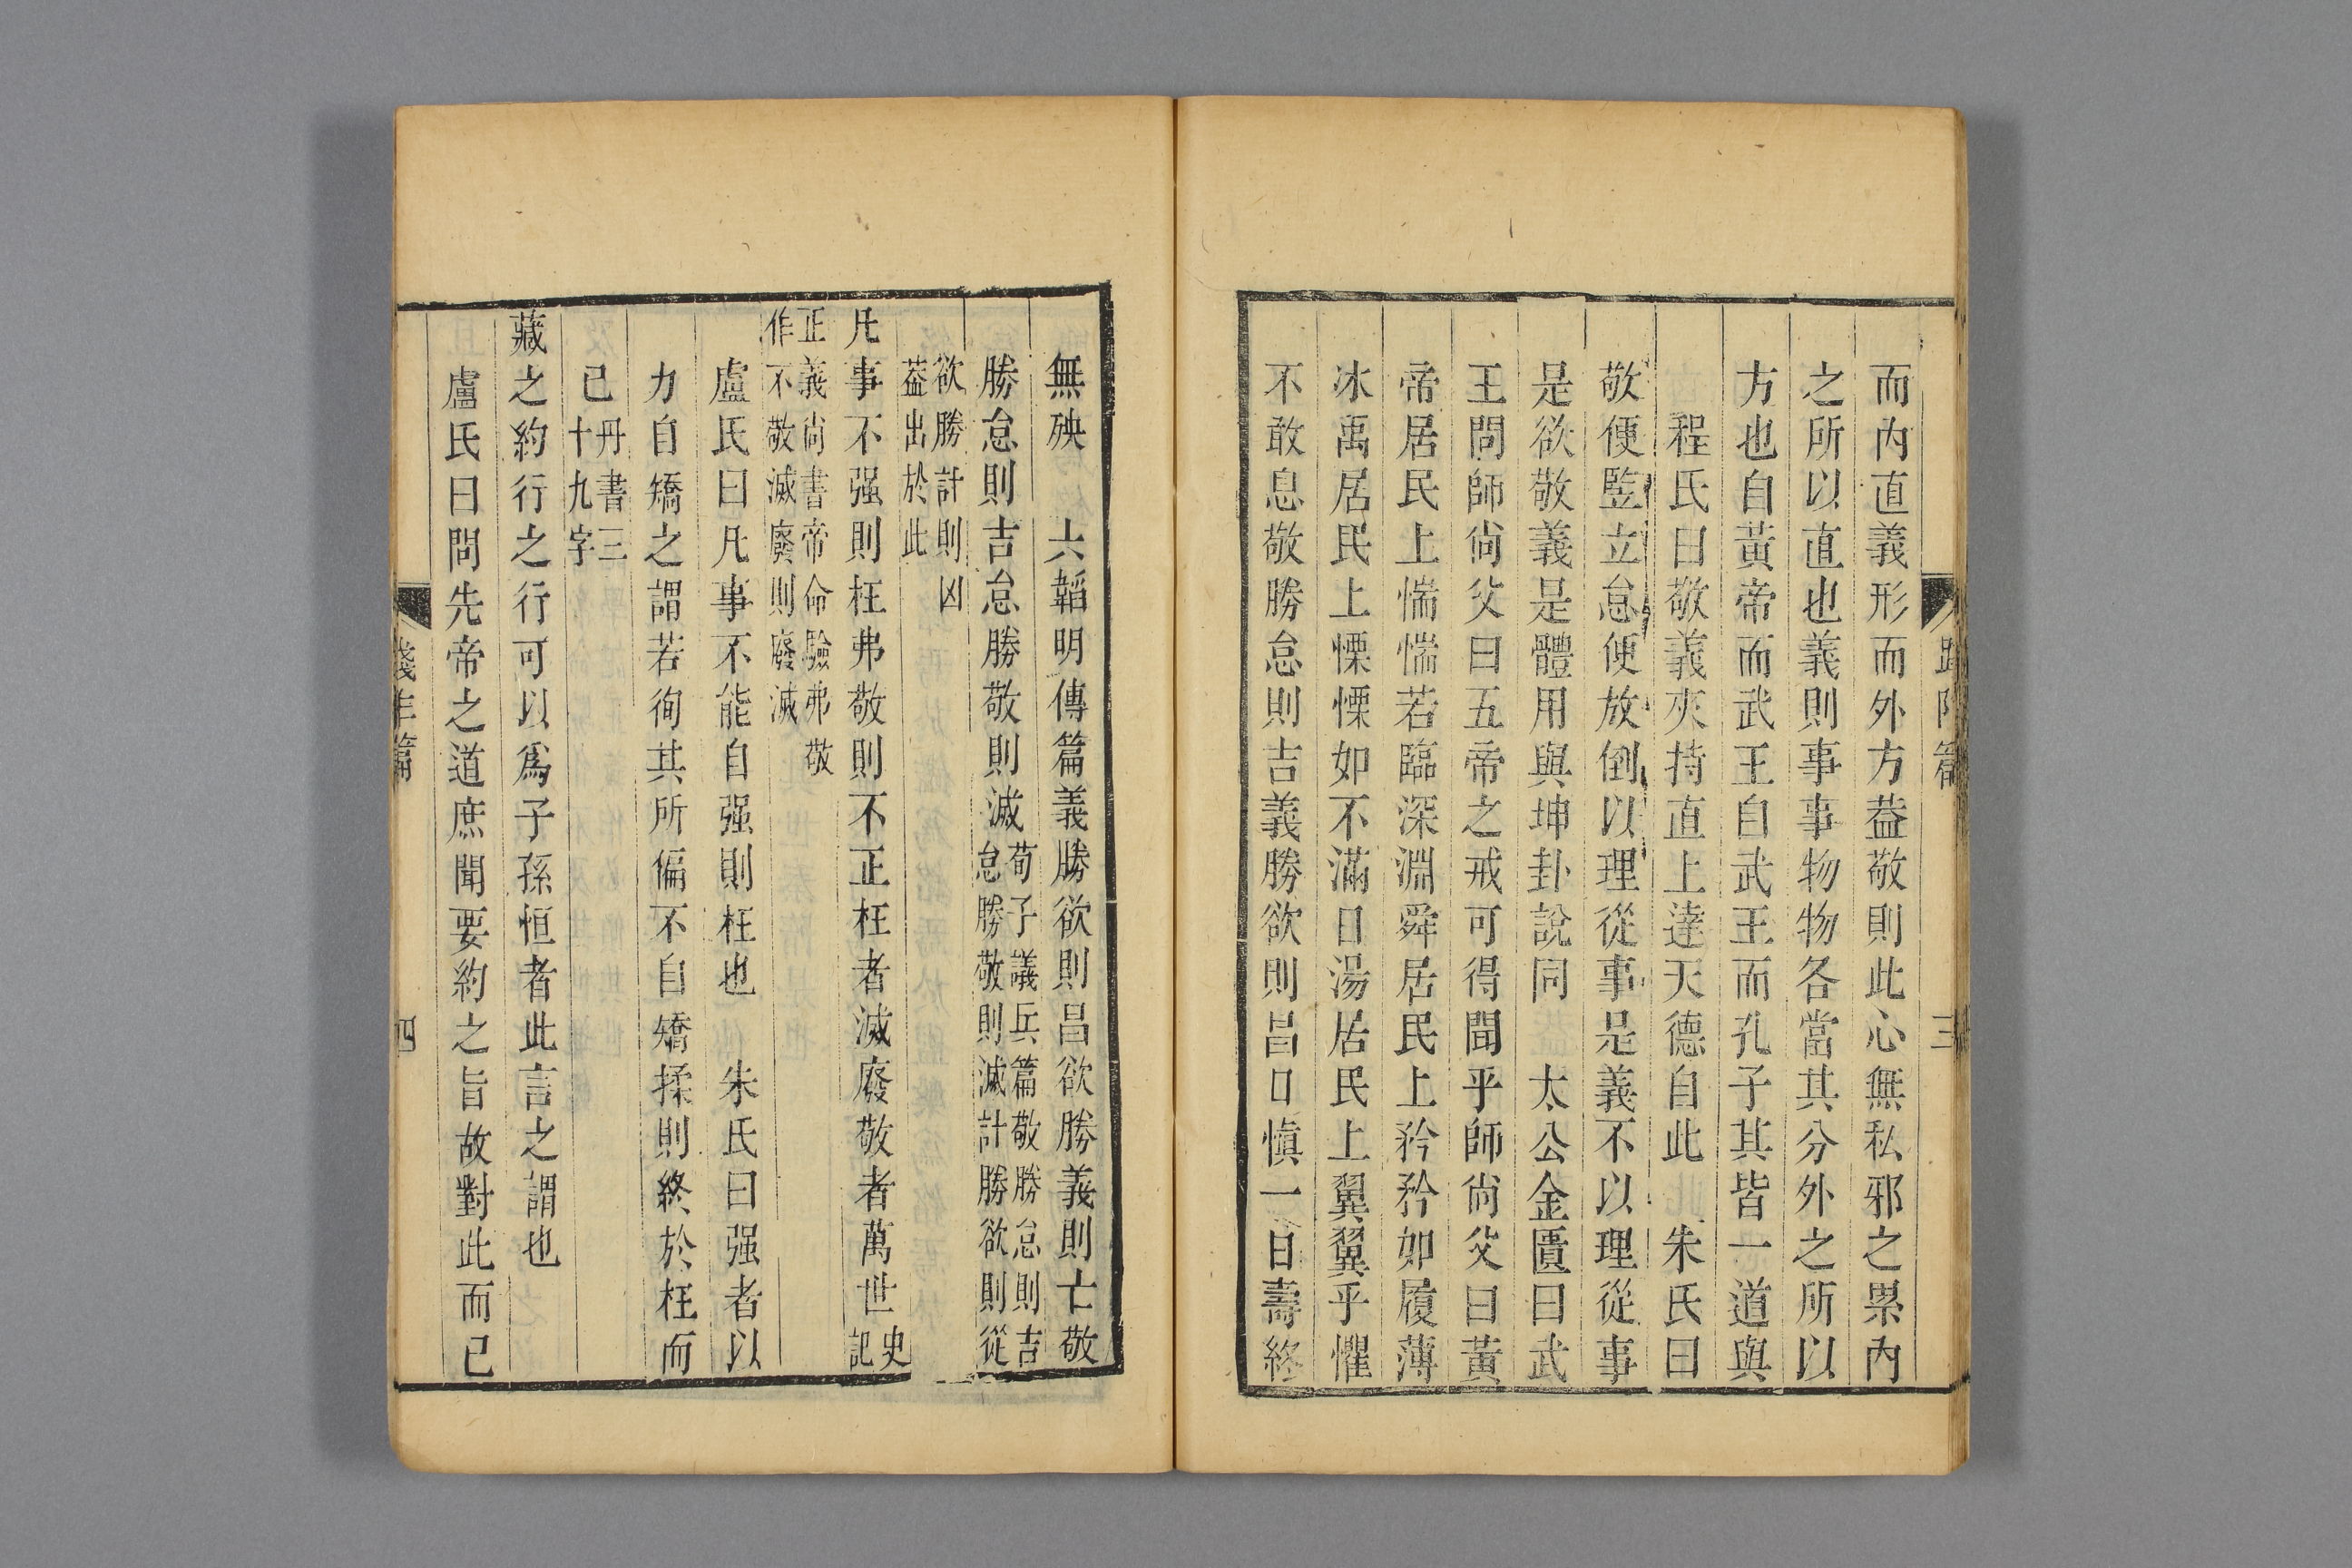 而內直義形而外方葢敬則此心無私邪之累內
之所以直也義則事事物物各當其分外之所以
方也自黃帝而武王自武王而孔子其皆一道與
程氏曰敬義夾持直上達天德自此　朱氏曰
敬便竪立怠便放倒以理從事是義不以理從事
是欲敬義是體用與坤卦說同　太公金匱曰武
王問師尙父曰五帝之戒可得聞乎師尙父曰黃
帝居民上惴惴若臨深淵舜居民上矜矜如履薄
冰禹居民上慄慄如不滿日湯居民上翼翼乎懼
不敢息敬勝怠則吉義勝欲則昌日愼一日壽終
篇
三
無殃　六韜明傳篇義勝欲則昌欲勝義則亡敬
勝怠則吉怠勝敬則滅荀子議兵篇敬勝怠則吉
怠勝敬則滅計勝欲則從
欲勝計則凶
葢出於此
凡事不强則枉弗敬則不正枉者滅廢敬者萬世史
記
正義尙書帝命驗弗敬
作不敬滅廢則廢滅
盧氏曰凡事不能自强則枉也　朱氏曰强者以
力自矯之謂若徇其所偏不自矯揉則終於枉而
已丹書三
十九字
藏之約行之行可以爲子孫恒者此言之謂也
盧氏曰問先帝之道庶聞要約之旨故對此而已
踐阼篇
四